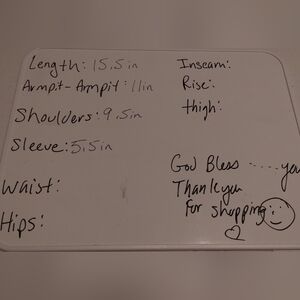 Length: 15.5in
Armpit-Armpit: 11in
Shoulders: 9.5in
Sleeve: 5.5in
Waist:
Hips:
Inseam:
Rise:
thigh:
God Bless ..... you
Thank you
for shopping